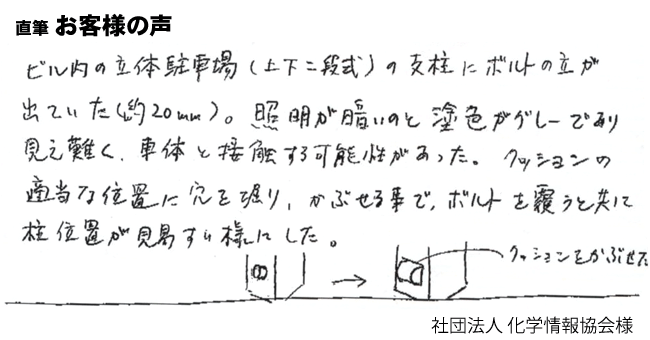 直筆 お客様の声
ビル内の立体駐車場(上下二段式)の支柱にボルトの立が
出ていた(約20mm)。照明が暗いのと塗色がグレーであり
見え難く、車体と接触する可能性があった。クッションの
適当な位置に穴を堀り、かぶせる事で、ボルトを覆うと共に
柱位置が見易すい様にした。
クッションをかぶせた
社団法人 化学情報協会様